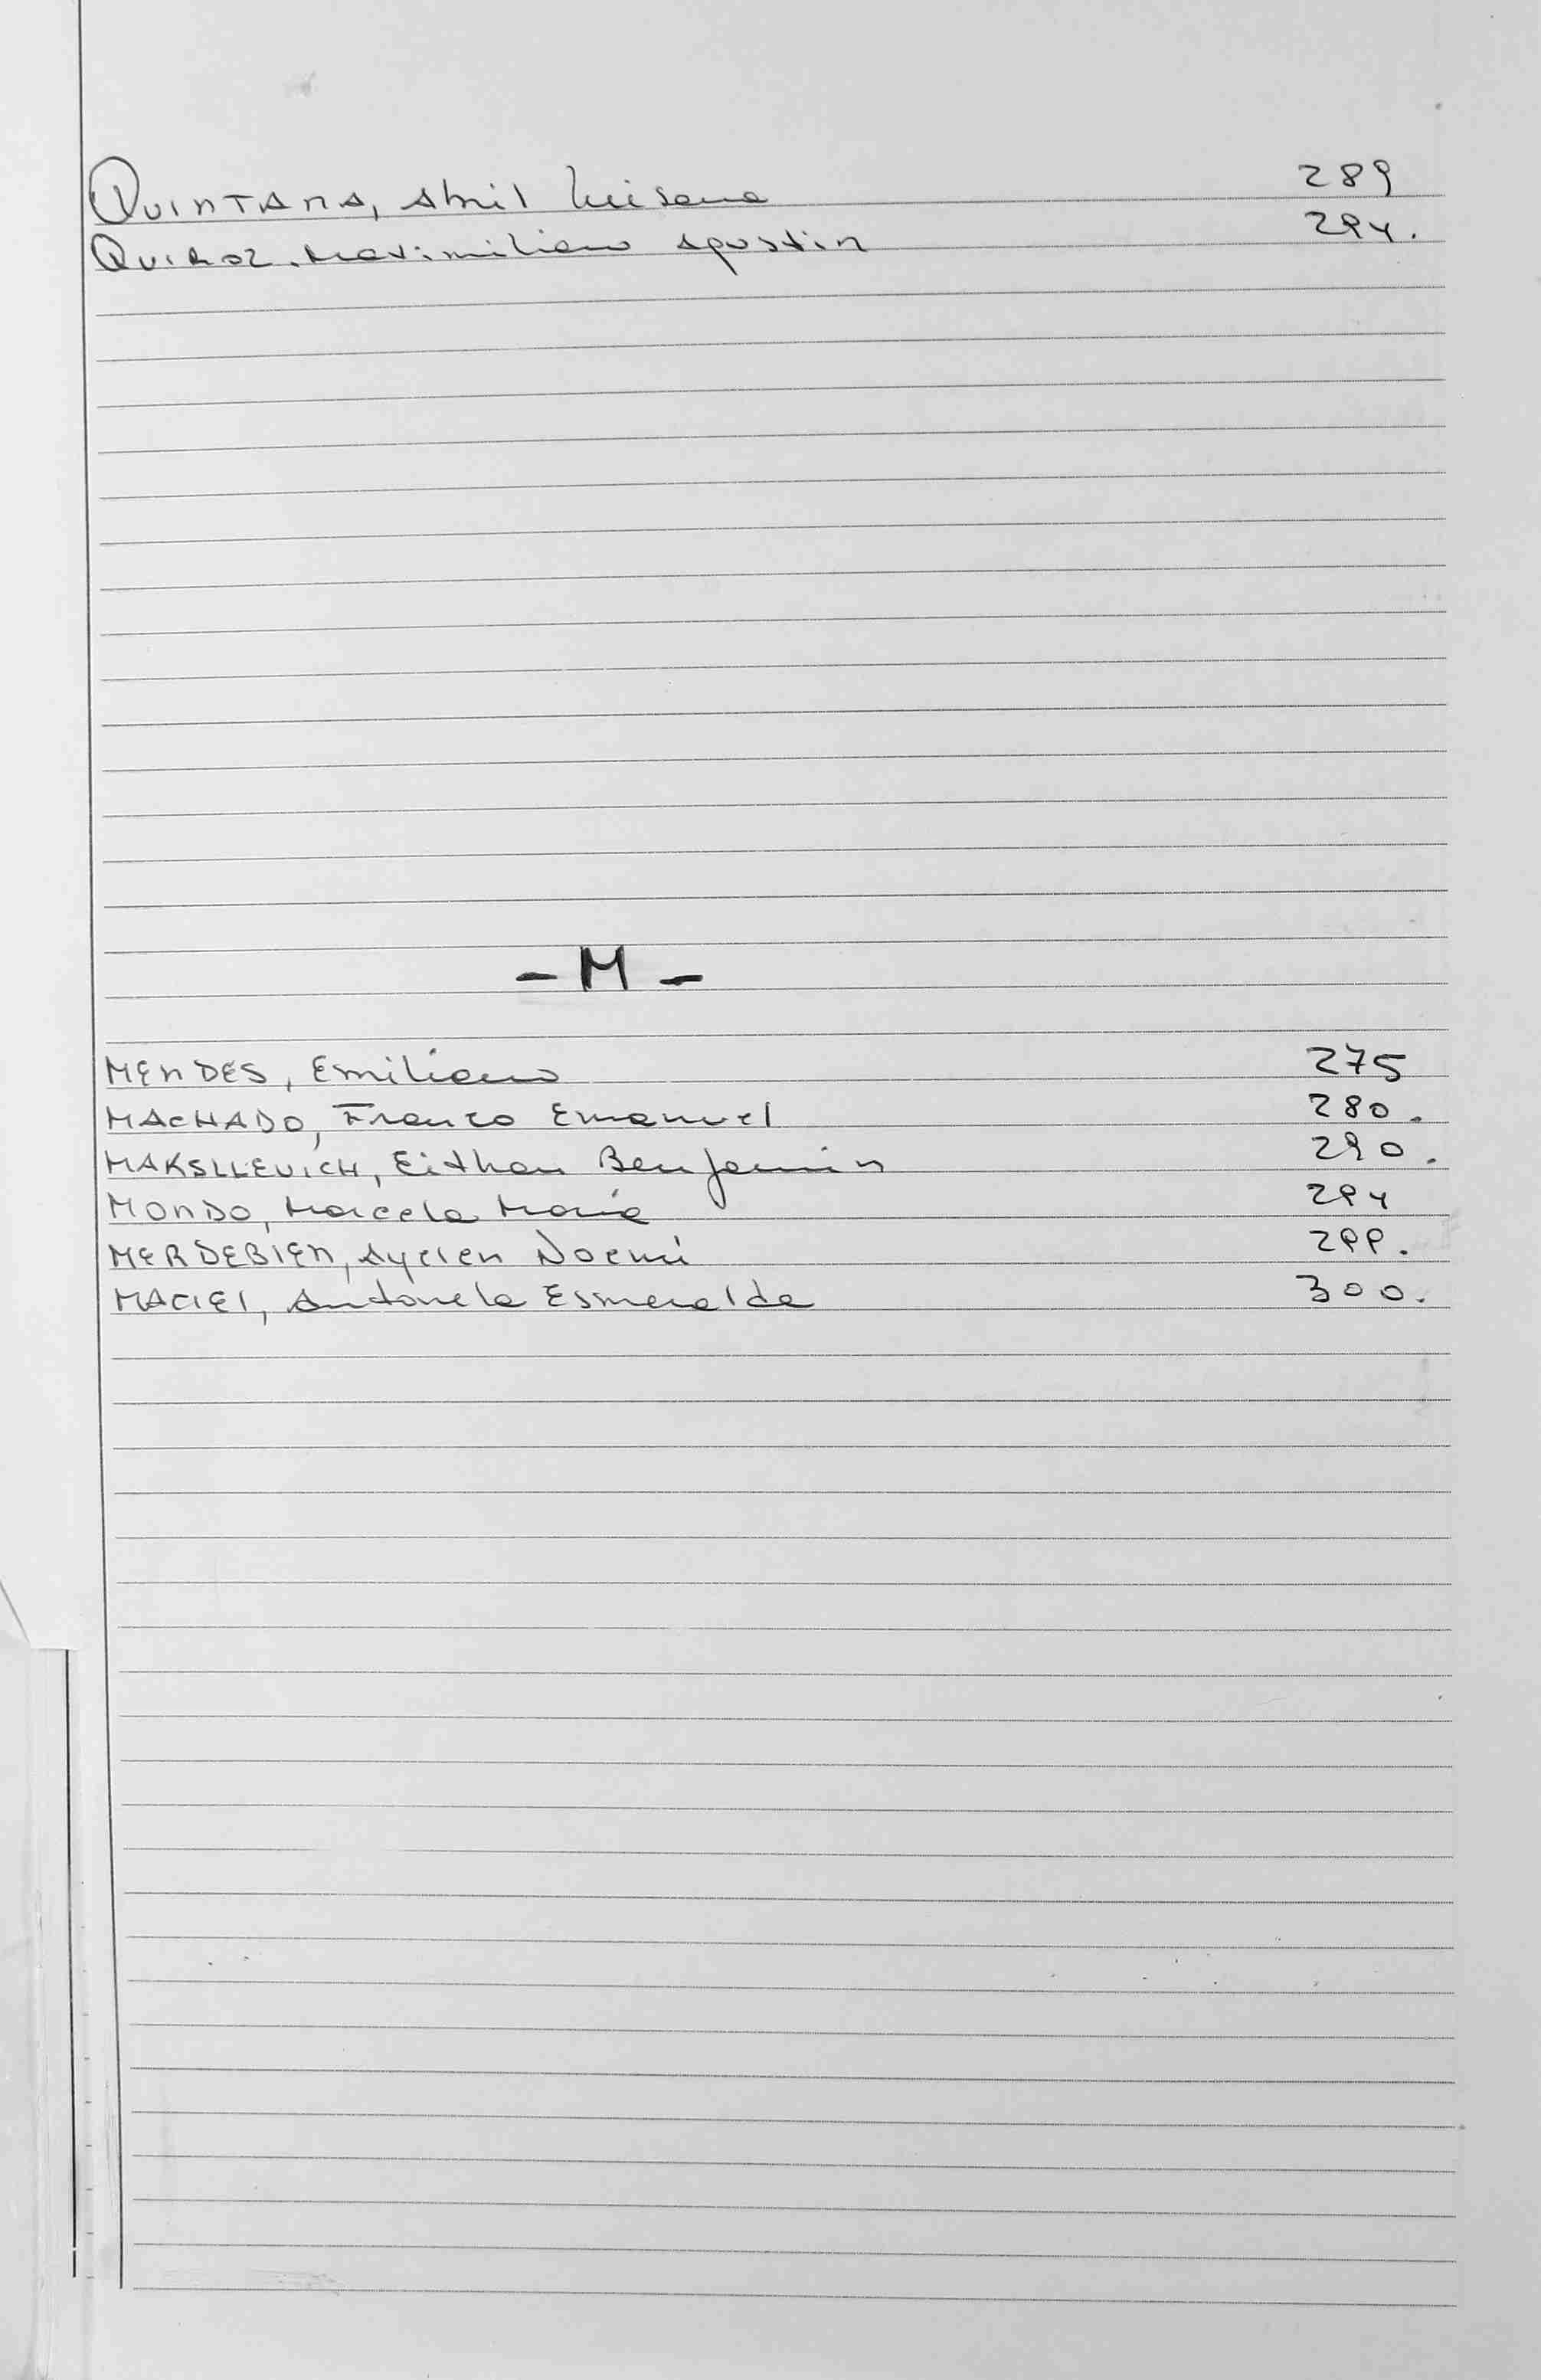 QUINTANA, Abril Luisana 289
QUIROZ, Maximiliano Agustin 294.
- M -
MENDES, Emiliano 275
MACHADO, Franco Emanuel 280.
MAKSLLEVICH, Eithan Benjamin 290.
MONDO, Marcela María 294
MERDEBIEN, Aycien Noemí 299.
MACIEl, Antonela Esmeralda 300.